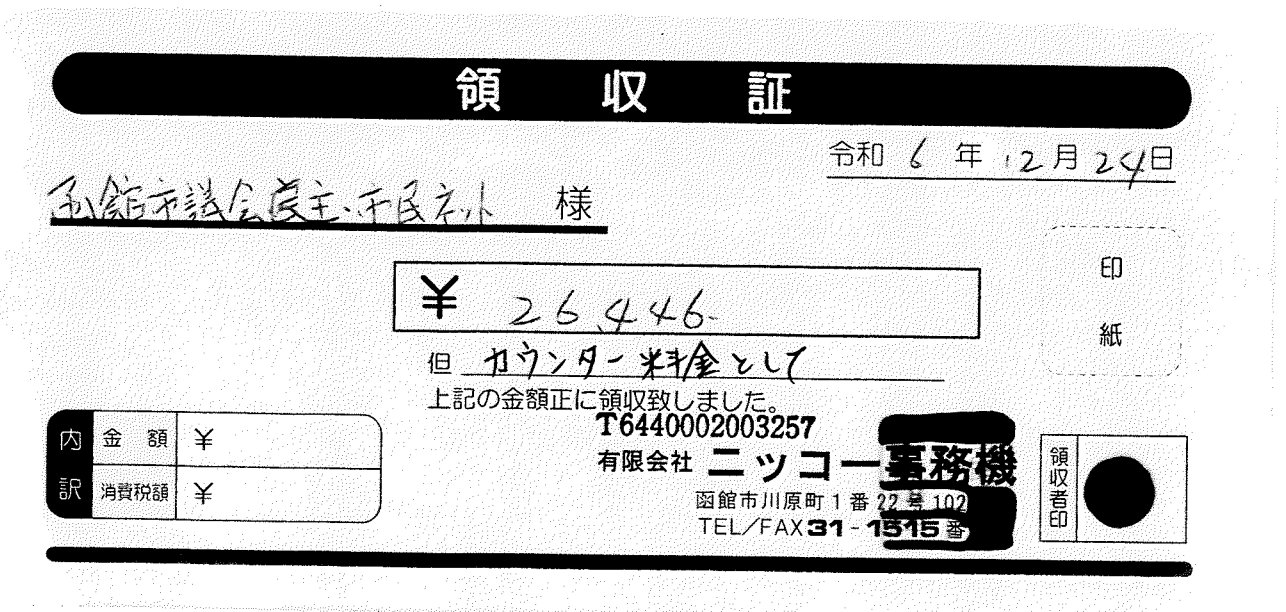 領収証
令和 6 年 12月24日
函館市議会民主・市民ネット 様
¥ 26,446-
但 カウンター料金として
上記の金額正に領収致しました。
T6440002003257
有限会社 ニッコー事務機
函館市川原町1番22号102
TEL/FAX 31-1515番
印紙
内訳
金額 ¥
消費税額 ¥
領収者印